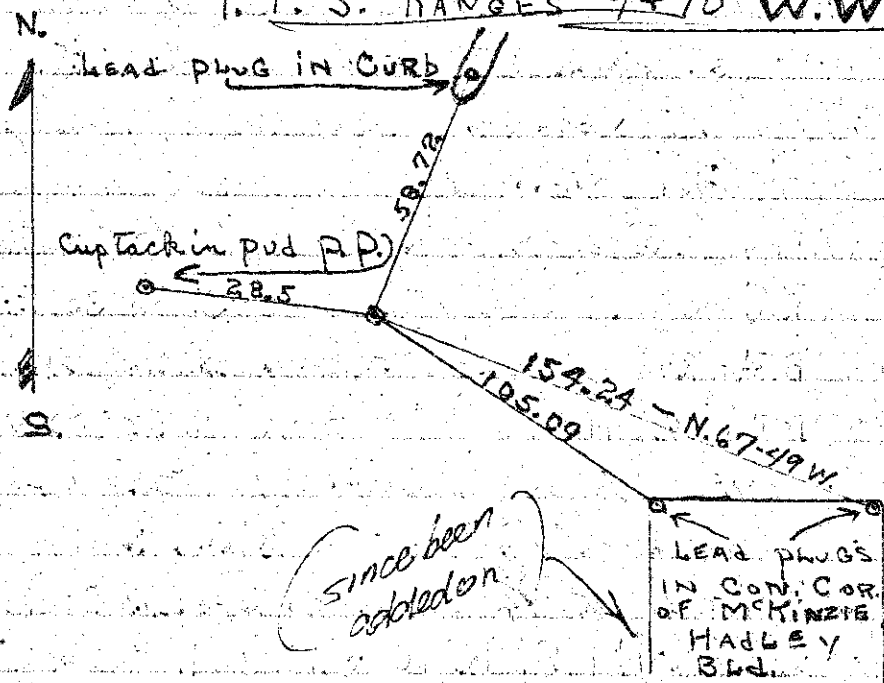 T. 7. S. RANGES 9+10 W.W
N.
LEAD PLUG IN CURB
58.72
Cup Tack in pud P.P.
28.5
154.24 - N.67-49 W.
105.09
S.
(since been
added on)
LEAD PLUGS
IN CON. COR.
OF McKINZIE
HADLEY
BLd.